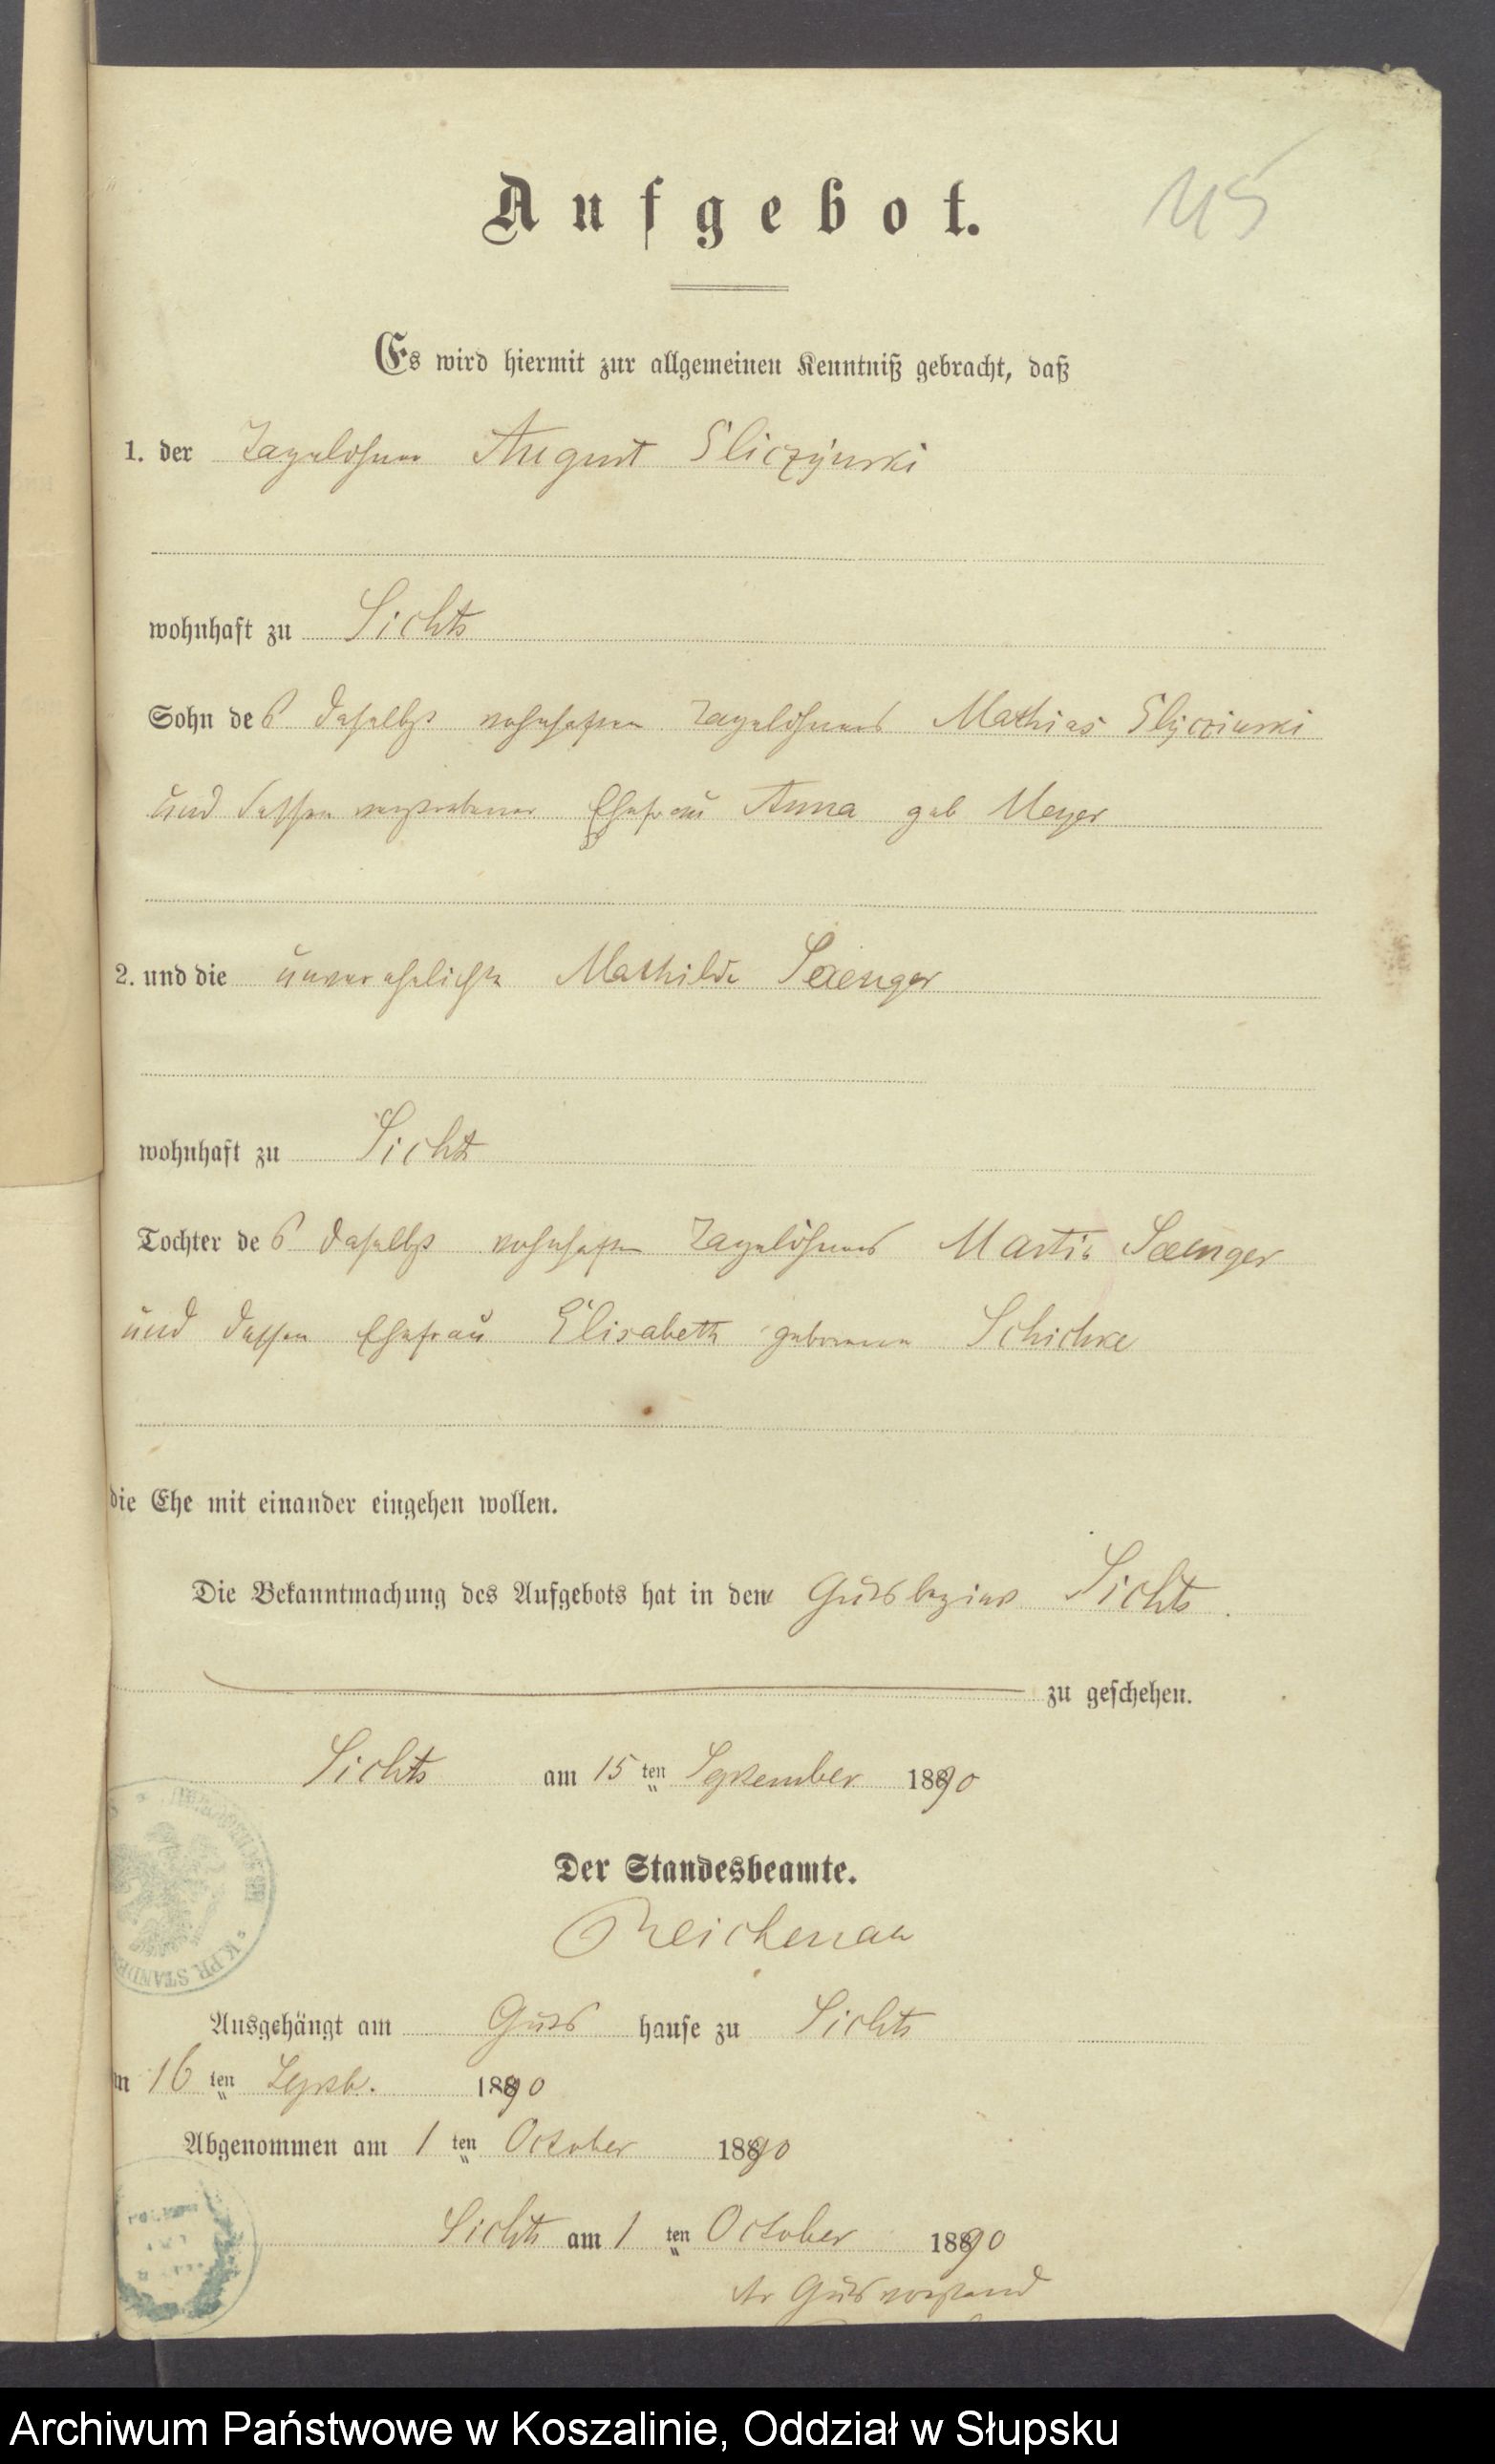 Aufgebot.
145
Es wird hiermit zur allgemeinen Kenntniß gebracht, daß
1. der Tagelöhner August Sliczynski
wohnhaft zu Lichts
Sohn des daselbst wohnhaften Tagelöhners Mathias Slyczinski
und dessen verstorbener Ehefrau Anna geb Meyer
2. und die unverehelichte Mathilde Saenger
wohnhaft zu Lichts
Tochter des daselbst wohnhaften Tagelöhners Martin Saenger
und dessen Ehefrau Elisabeth geborenen Schichke
die Ehe mit einander eingehen wollen.
Die Bekanntmachung des Aufgebots hat in dem Gutsbezirk Lichts.
zu geschehen.
Lichts am 15 ten September 1890
Der Standesbeamte.
Reichenau
Ausgehängt am Guts hause zu Lichts
m 16 ten Septb. 1890
Abgenommen am 1 ten October 1890
Lichts am 1 ten October 1890
Der Gutsvorstand
K. PR. STANDE
Archiwum Państwowe w Koszalinie, Oddział w Słupsku